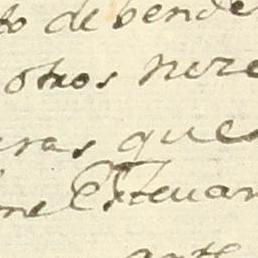 to de bende
otros nere
eras que
ne Esteuan